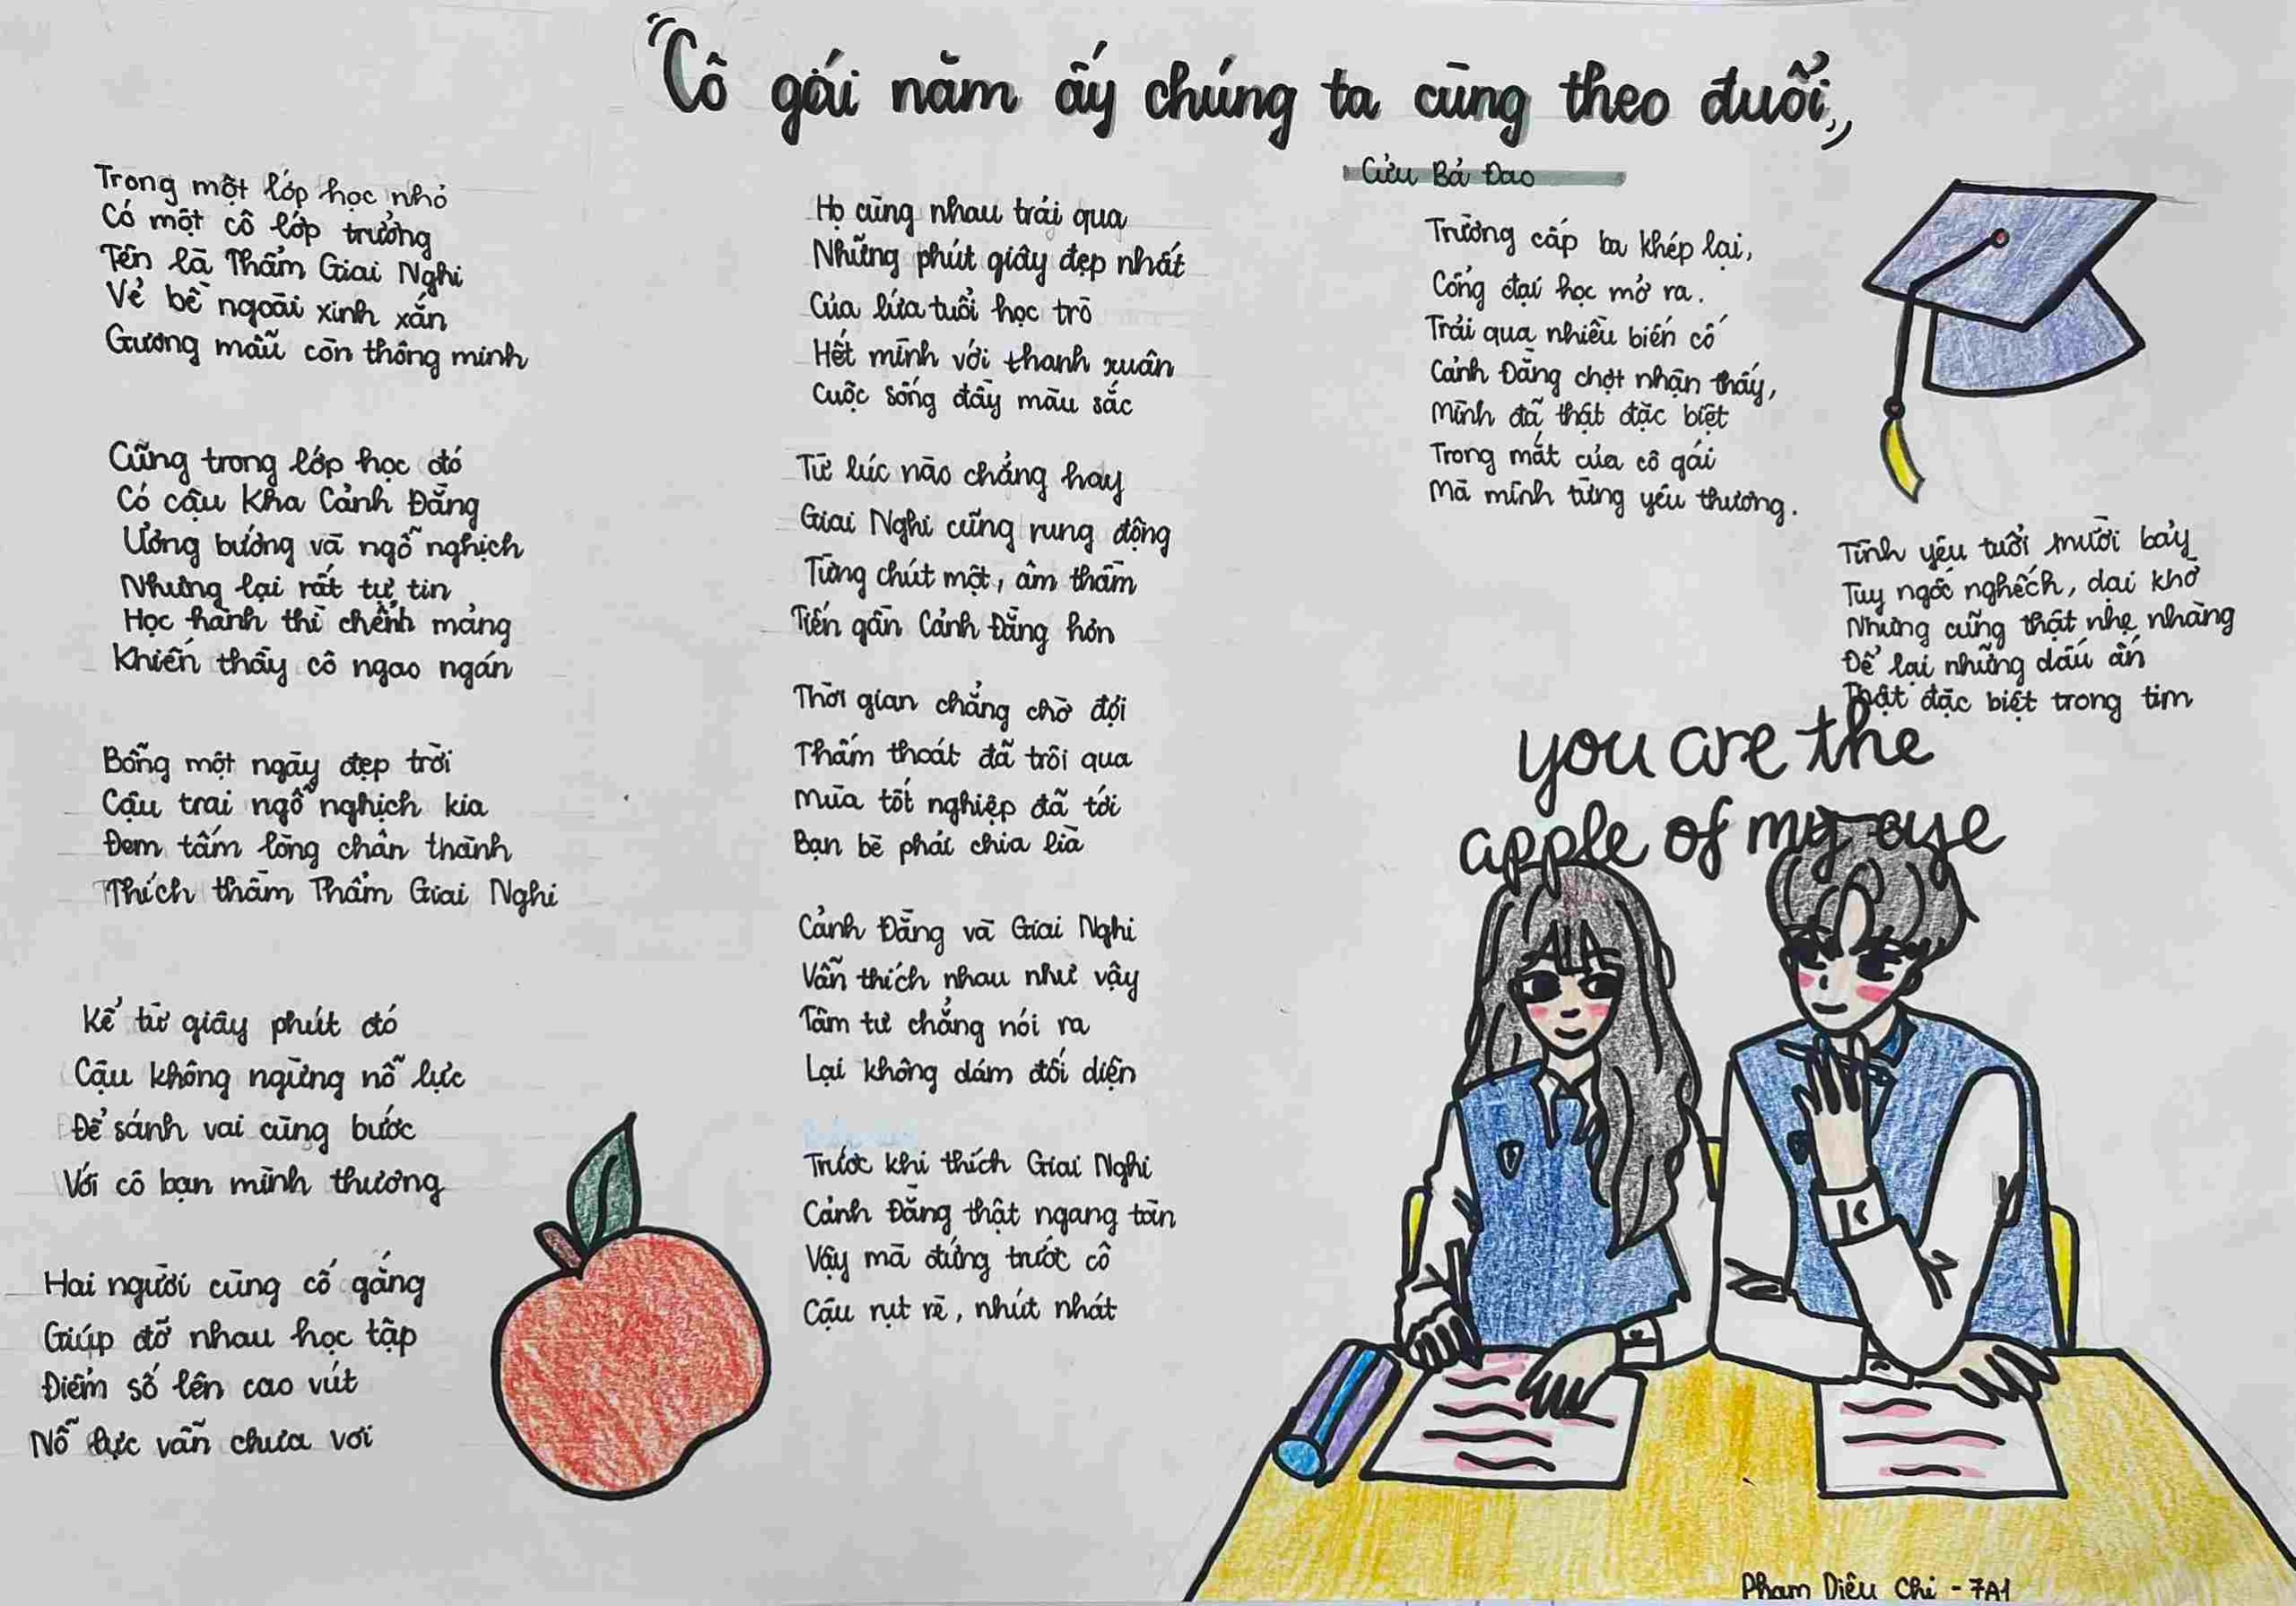 "Cô gái năm ấy chúng ta cùng theo đuổi"
Cửu Bả Đao
Trong một lớp học nhỏ
Có một cô lớp trưởng
Tên là Thẩm Giai Nghi
Vẻ bề ngoài xinh xắn
Gương mẫu còn thông minh
Cũng trong lớp học đó
Có cậu Kha Cảnh Đằng
Ương bướng và ngỗ nghịch
Nhưng lại rất tự tin
Học hành thì chểnh mảng
Khiến thầy cô ngao ngán
Bỗng một ngày đẹp trời
Cậu trai ngỗ nghịch kia
Đem tấm lòng chân thành
Thích thầm Thẩm Giai Nghi
Kể từ giây phút đó
Cậu không ngừng nỗ lực
Để sánh vai cùng bước
Với cô bạn mình thương
Hai người cùng cố gắng
Giúp đỡ nhau học tập
Điểm số lên cao vút
Nỗ lực vẫn chưa vơi
Họ cùng nhau trải qua
Những phút giây đẹp nhất
Của lứa tuổi học trò
Hết mình với thanh xuân
Cuộc sống đầy màu sắc
Từ lúc nào chẳng hay
Giai Nghi cũng rung động
Từng chút một, âm thầm
Tiến gần Cảnh Đằng hơn
Thời gian chẳng chờ đợi
Thấm thoát đã trôi qua
Mùa tốt nghiệp đã tới
Bạn bè phải chia lìa
Cảnh Đằng và Giai Nghi
Vẫn thích nhau như vậy
Tâm tư chẳng nói ra
Lại không dám đối diện
Trước khi thích Giai Nghi
Cảnh Đằng thật ngang tàn
Vậy mà đứng trước cô
Cậu rụt rè, nhút nhát
Trường cấp ba khép lại,
Cổng đại học mở ra.
Trải qua nhiều biến cố
Cảnh Đằng chợt nhận thấy,
Mình đã thật đặc biệt
Trong mắt của cô gái
Mà mình từng yêu thương.
Tình yêu tuổi mười bảy
Tuy ngốc nghếch, dại khờ
Nhưng cũng thật nhẹ nhàng
Để lại những dấu ấn
Thật đặc biệt trong tim
you are the
apple of my eye
Phạm Diệu Chi - 7A1